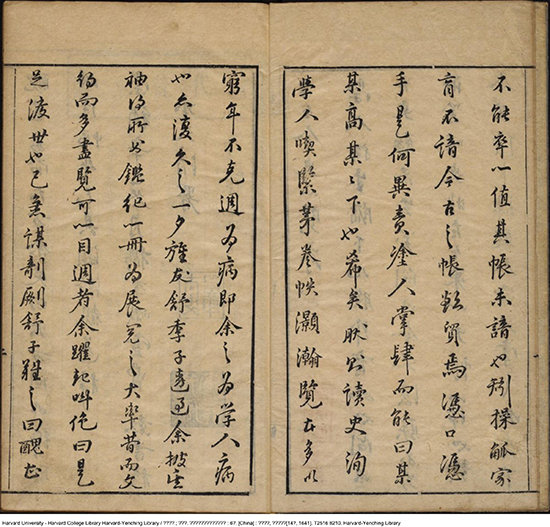 不能率以值其帳未諳也矧操觚家
育不諳今古之帳輕貿焉憑口憑
手是何異責塗人掌肆而能曰某
某高某某下也希矣肰公讀史洵
學人喫緊苐卷帙灝瀚覽者多以
窮年不克週為病即余之為学人病
也亦復久之一夕雄友舒季子遠過余披
袖得所出鑑紀一冊為展覓之大率昔而文
約而多盡覽可一目週者余躍起叫絕曰是
足渡世也已矣謀剞劂舒子難之曰醜
Harvard University - Harvard College Library Harvard-Yenching Library / ???? ; ???. ????????????? : 67. [China] : ????, ?????[14?, 1641]. T2516 8210. Harvard-Yenching Library